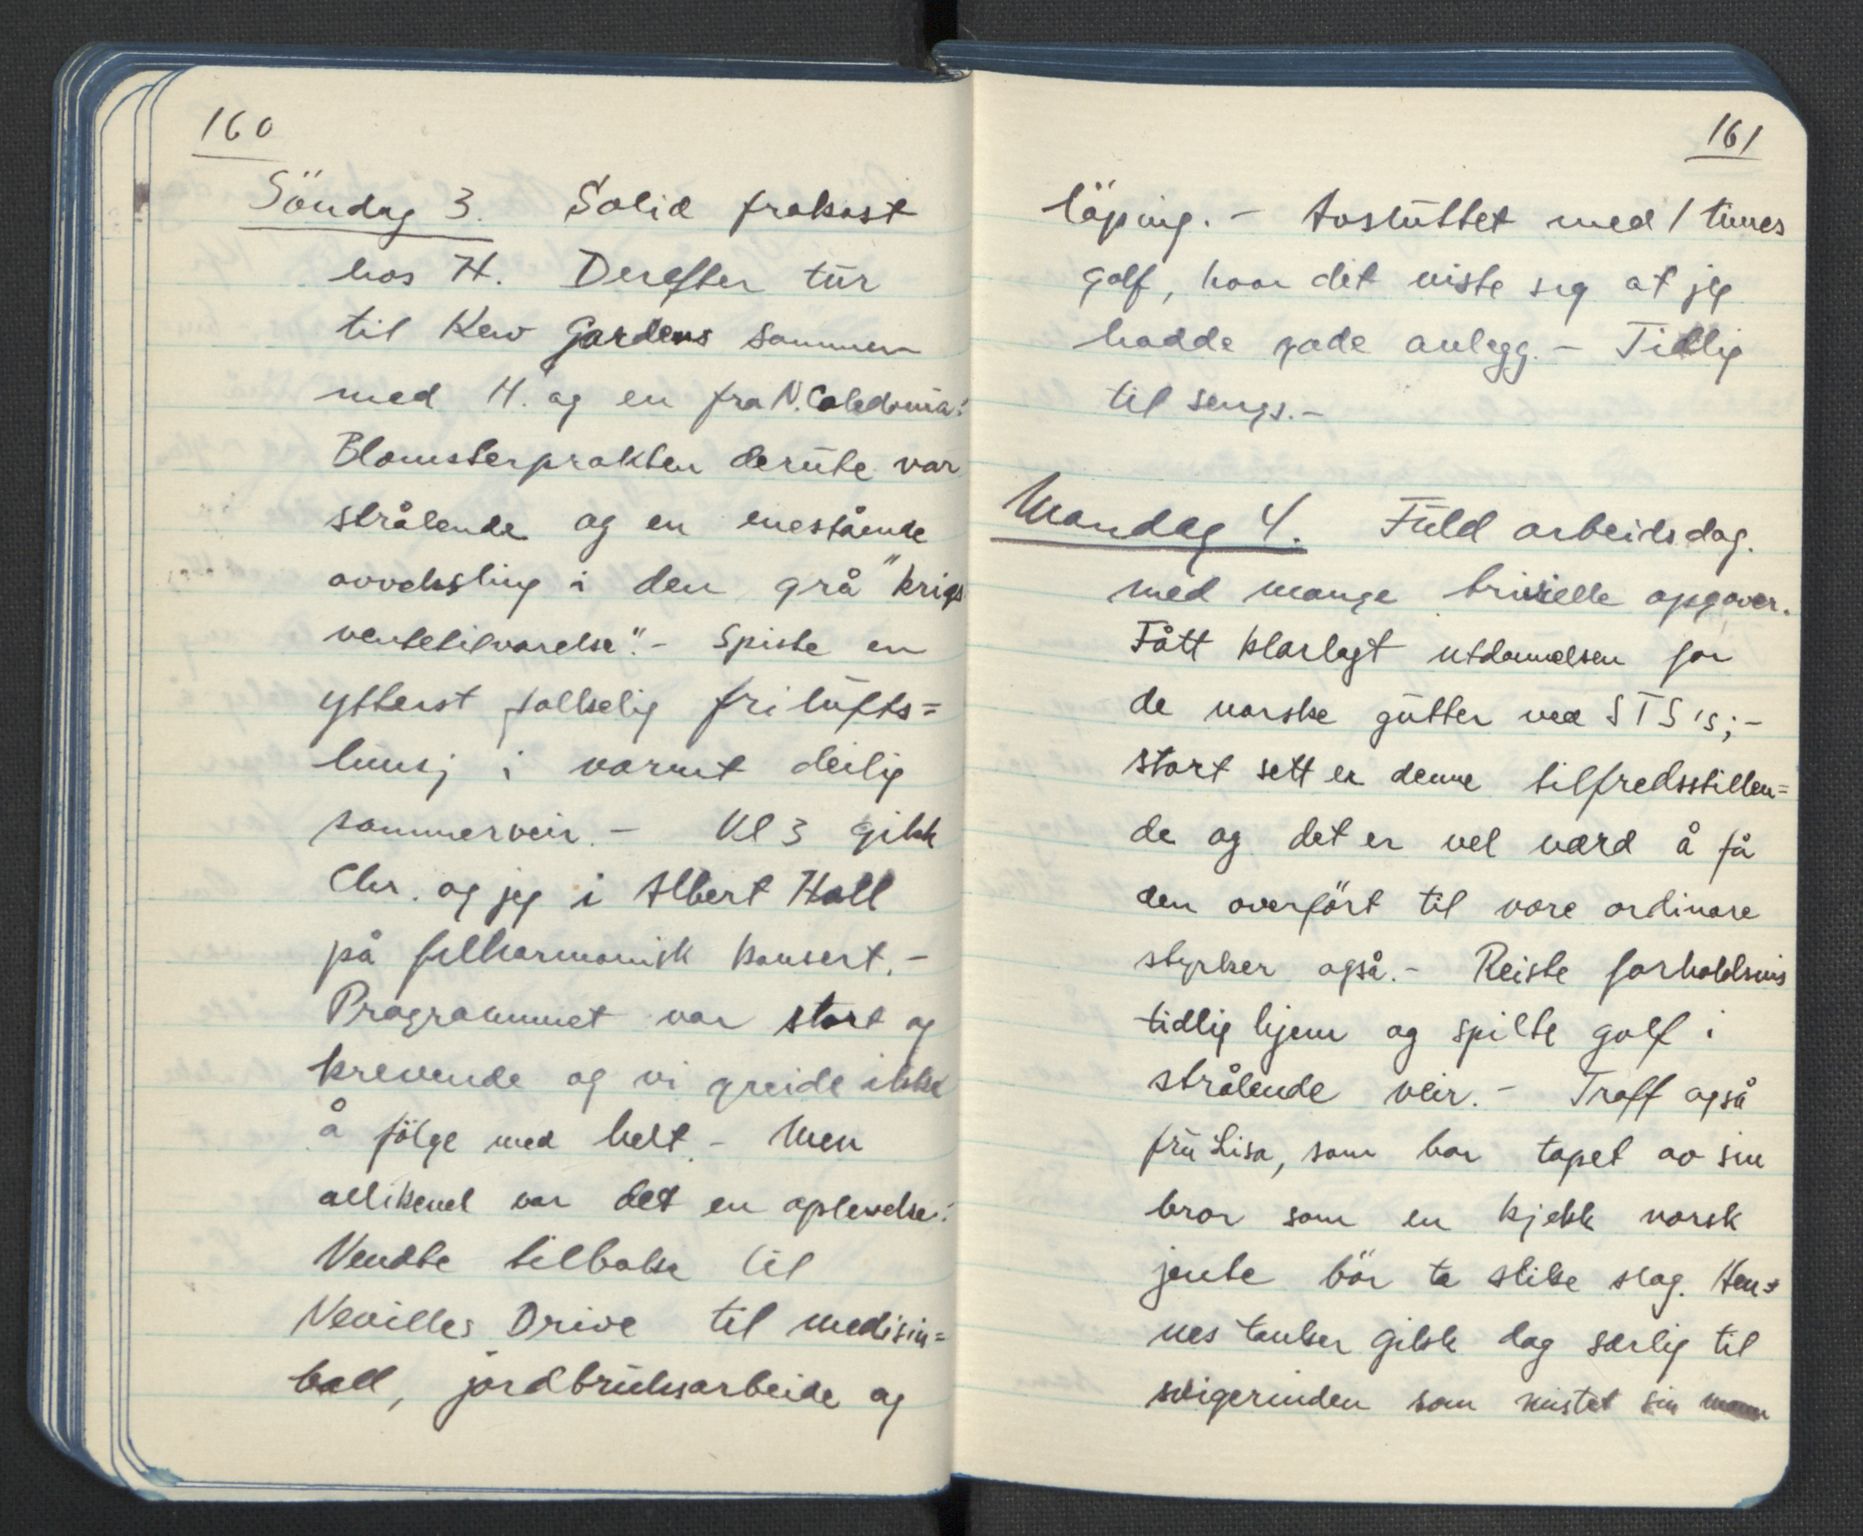 160
Söndag 3. Solid frokost
hos H. Derefter tur
til Kew Gardens sammen
med H. og en fra N. Caledonia.
Blomsterprakten derute var
strålende og en enestående
avveksling i den grå "krigs
ventetilværelse". - Spiste en
ytterst folkelig frilufts=
lunsj i varmt deilig
sommerveir. - Kl 3 gikk
Chr. og jeg i Albert Hall
på filharmonisk konsert. -
Programmet var stort og
krevende og vi greide ikke
å fölge med helt. - Men
allikevel var det en oplevelse.
Vendte tilbake til
Nevilles Drive til medisin=
ball, jordbruksarbeide og
161
löping. - Avsluttet med 1 times
golf, hvor det viste sig at jeg
hadde gode anlegg. - Tidlig
til sengs. -
Mandag 4. Fuld arbeidsdag.
med mange trivielle opgaver.
Fått klarlagt utdannelsen for
de norske gutter ved STS's; -
stort sett er denne tilfredsstillen=
de og det er vel værd å få
den overfört til vore ordinære
styrker også. - Reiste forholdsvis
tidlig hjem og spilte golf i
strålende veir. - Traff også
fru Lisa, som bar tapet av sin
bror som en kjekk norsk
jente bör ta slike slag. Hen=
nes tanker gikk dog særlig til
svigerinden som mistet sin mann